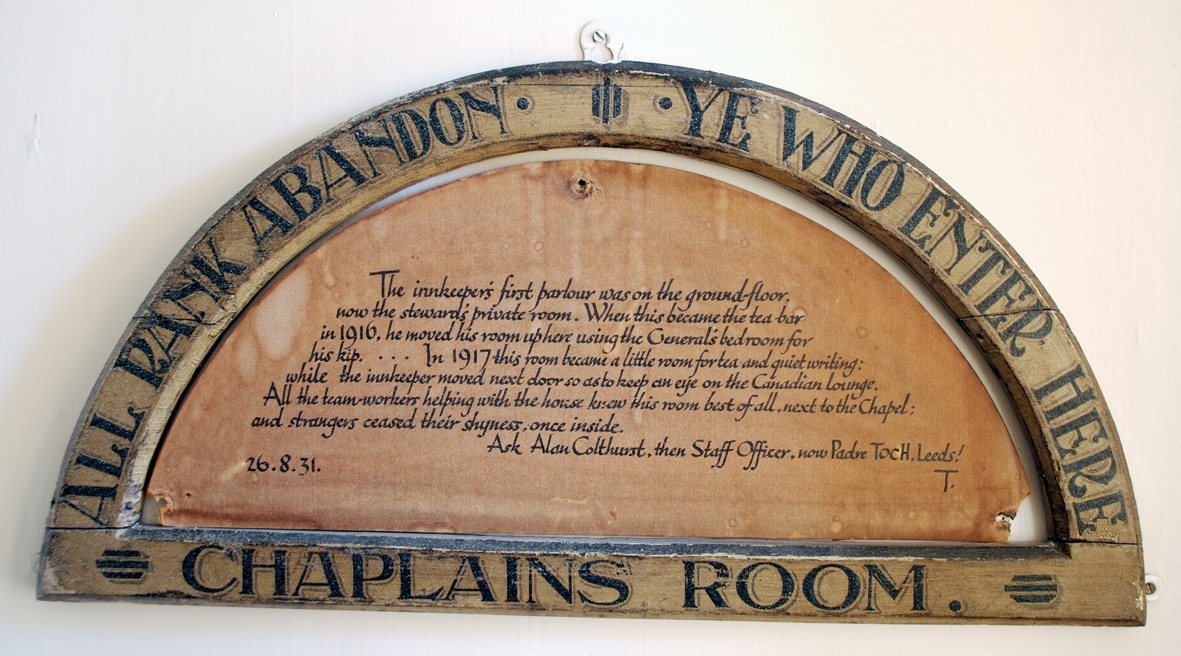 ALL RANK ABANDON · · YE WHO ENTER HERE
The innkeeper's first parlour was on the ground-floor,
now the steward's private room. When this became the tea-bar
in 1916, he moved his room up here using the General's bedroom for
his kip. . . . In 1917 this room became a little room for tea and quiet writing:
while the innkeeper moved next door so as to keep an eye on the Canadian lounge.
All the team-workers helping with the house knew this room best of all, next to the Chapel;
and strangers ceased their shyness, once inside.
Ask Alan Colthurst, then Staff Officer, now Padre TOCH, Leeds!
26.8.31.
T.
CHAPLAINS ROOM.